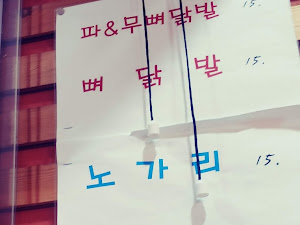 파&무뼈닭발 15.
뼈 닭 발 15.
노 가 리 15.